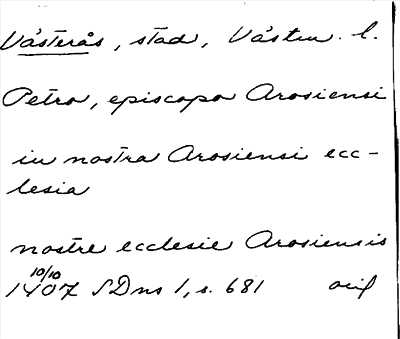 Västerås, stad, Västm. l.
Petro, episcopo Arosiensi
in nostra Arosiensi ecc-
lesia
nostre ecclesie Arosiensis
10/10
1407 SDns 1, s. 681 orig